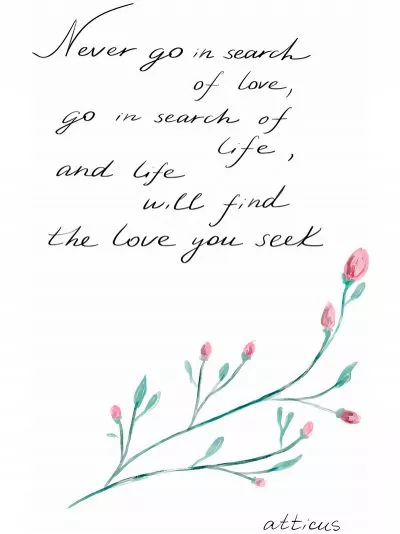 Never go in search
of love,
go in search of
life,
and life
will find
the love you seek
atticus